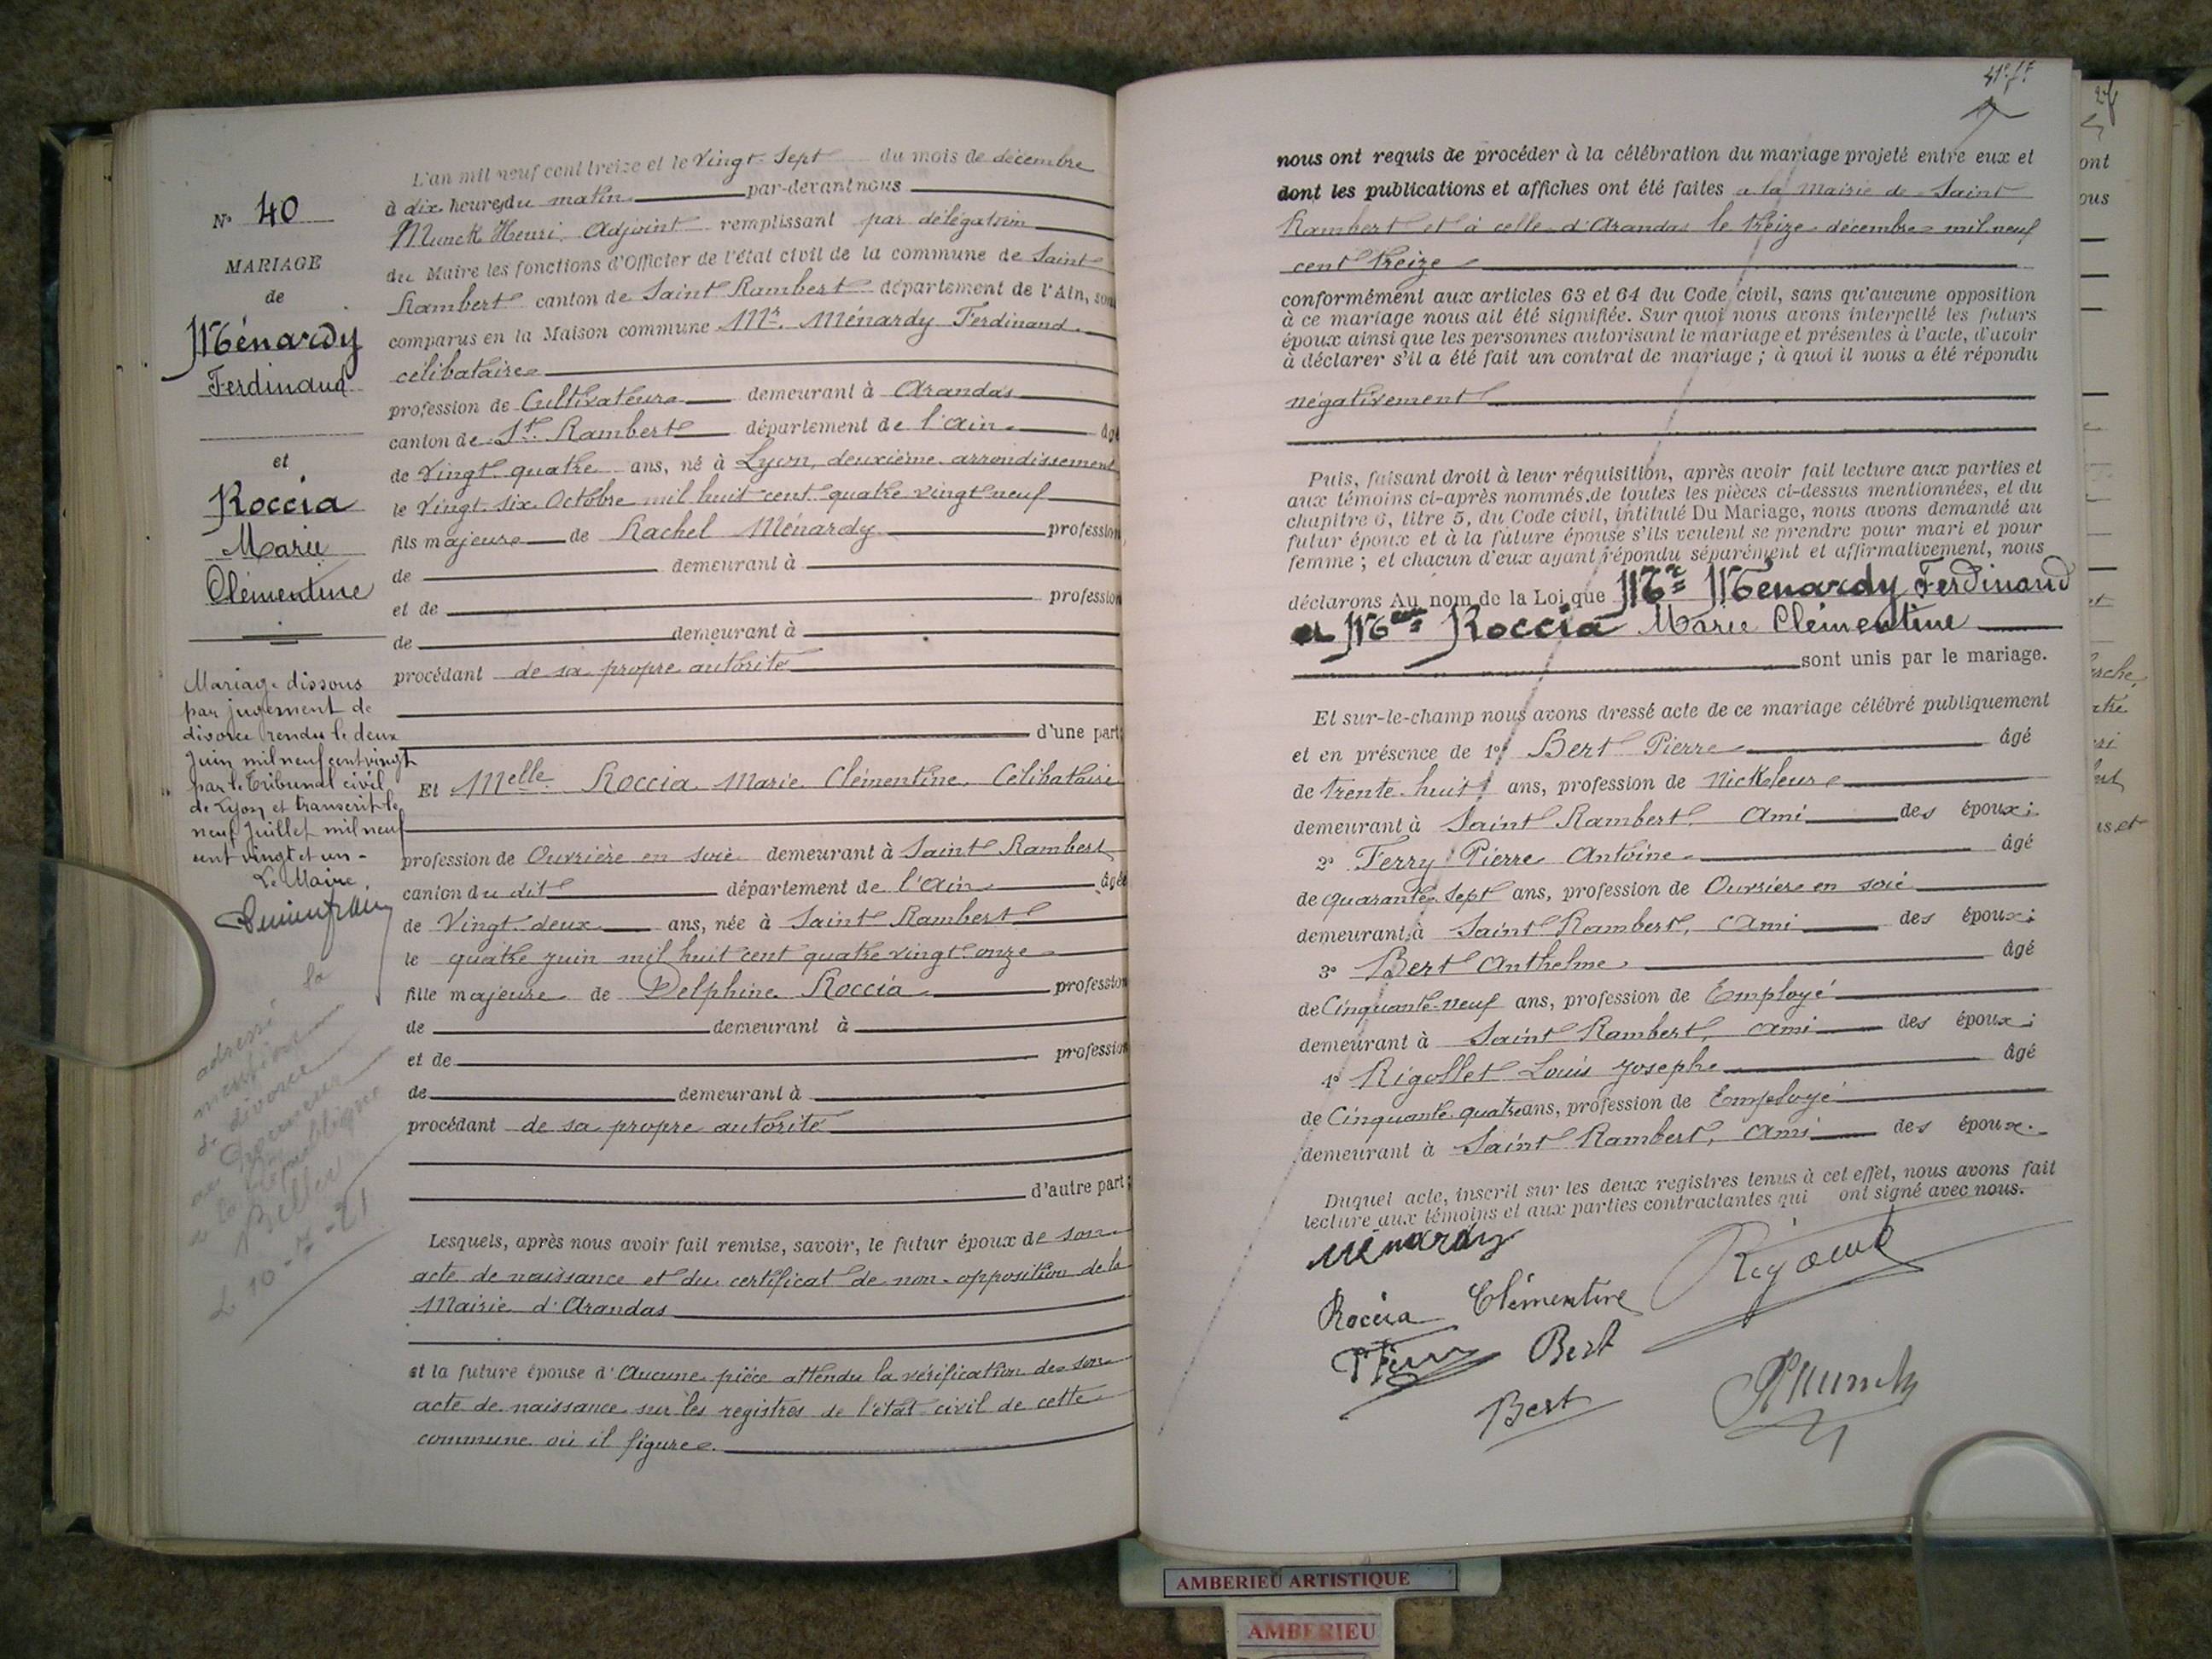 N° 40
MARIAGE
de
Ménardy
Ferdinand
et
Roccia
Marie
Clémentine
Mariage dissous
par jugement de
divorce rendu le deux
Juin mil neuf cent vingt
par le Tribunal civil
de Lyon et transcrit le
neuf Juillet mil neuf
cent vingt et un -
Le Maire
adressé la
mention
de divorce
au Procureur
de la République
Belley
L 10-7-21
L'an mil neuf cent treize et le Vingt-Sept du mois de décembre
à dix heures du matin par-devant nous
Munck Henri, Adjoint remplissant par délégation
du Maire les fonctions d'Officier de l'état civil de la commune de Saint
Rambert canton de Saint Rambert département de l'Ain, sont
comparus en la Maison commune Mr. Ménardy Ferdinand
célibataire
profession de Cultivateur demeurant à Arandas
canton de St. Rambert département de l'Ain âgé
de Vingt quatre ans, né à Lyon, deuxième arrondissement
le Vingt six Octobre mil huit cent quatre vingt neuf
fils majeur de Rachel Ménardy profession
de demeurant à
et de profession
de demeurant à
procédant de sa propre autorité
d'une part;
Et Melle Roccia Marie Clémentine, Célibataire
profession de Ouvrière en soie demeurant à Saint Rambert
canton du dit département de l'Ain âgée
de Vingt deux ans, née à Saint Rambert
le quatre juin mil huit cent quatre vingt onze
fille majeure de Delphine Roccia profession
de demeurant à
et de profession
de demeurant à
procédant de sa propre autorité
d'autre part;
Lesquels, après nous avoir fait remise, savoir, le futur époux de son
acte de naissance et du certificat de non-opposition de la
Mairie d'Arandas
et la future épouse d'Aucune pièce attendu la vérification de son
acte de naissance sur les registres de l'état civil de cette
commune où il figure.
41e ft
nous ont requis de procéder à la célébration du mariage projeté entre eux et
dont les publications et affiches ont été faites à la Mairie de Saint
Rambert et à celle d'Arandas le treize décembre mil neuf
cent treize
conformément aux articles 63 et 64 du Code civil, sans qu'aucune opposition
à ce mariage nous ait été signifiée. Sur quoi nous avons interpellé les futurs
époux ainsi que les personnes autorisant le mariage et présentes à l'acte, d'avoir
à déclarer s'il a été fait un contrat de mariage ; à quoi il nous a été répondu
négativement
Puis, faisant droit à leur réquisition, après avoir fait lecture aux parties et
aux témoins ci-après nommés, de toutes les pièces ci-dessus mentionnées, et du
chapitre 6, titre 5, du Code civil, intitulé Du Mariage, nous avons demandé au
futur époux et à la future épouse s'ils veulent se prendre pour mari et pour
femme ; et chacun d'eux ayant répondu séparément et affirmativement, nous
déclarons Au nom de la Loi que Mr Ménardy Ferdinand
et Melle Roccia Marie Clémentine
sont unis par le mariage.
Et sur-le-champ nous avons dressé acte de ce mariage célébré publiquement
et en présence de 1° Bert Pierre âgé
de trente-huit ans, profession de Nickeleur
demeurant à Saint Rambert, Ami des époux;
2° Ferry Pierre Antoine âgé
de quarante sept ans, profession de Ouvrier en soie
demeurant à Saint Rambert, Ami des époux;
3° Bert Anthelme âgé
de Cinquante-neuf ans, profession de Employé
demeurant à Saint Rambert, ami des époux;
4° Rigollet Louis Joseph âgé
de Cinquante quatre ans, profession de Employé
demeurant à Saint Rambert, Ami des époux.
Duquel acte, inscrit sur les deux registres tenus à cet effet, nous avons fait
lecture aux témoins et aux parties contractantes qui ont signé avec nous.
Ménardy
Roccia Clémentine
Bert
Bert
AMBERIEU ARTISTIQUE
AMBERIEU